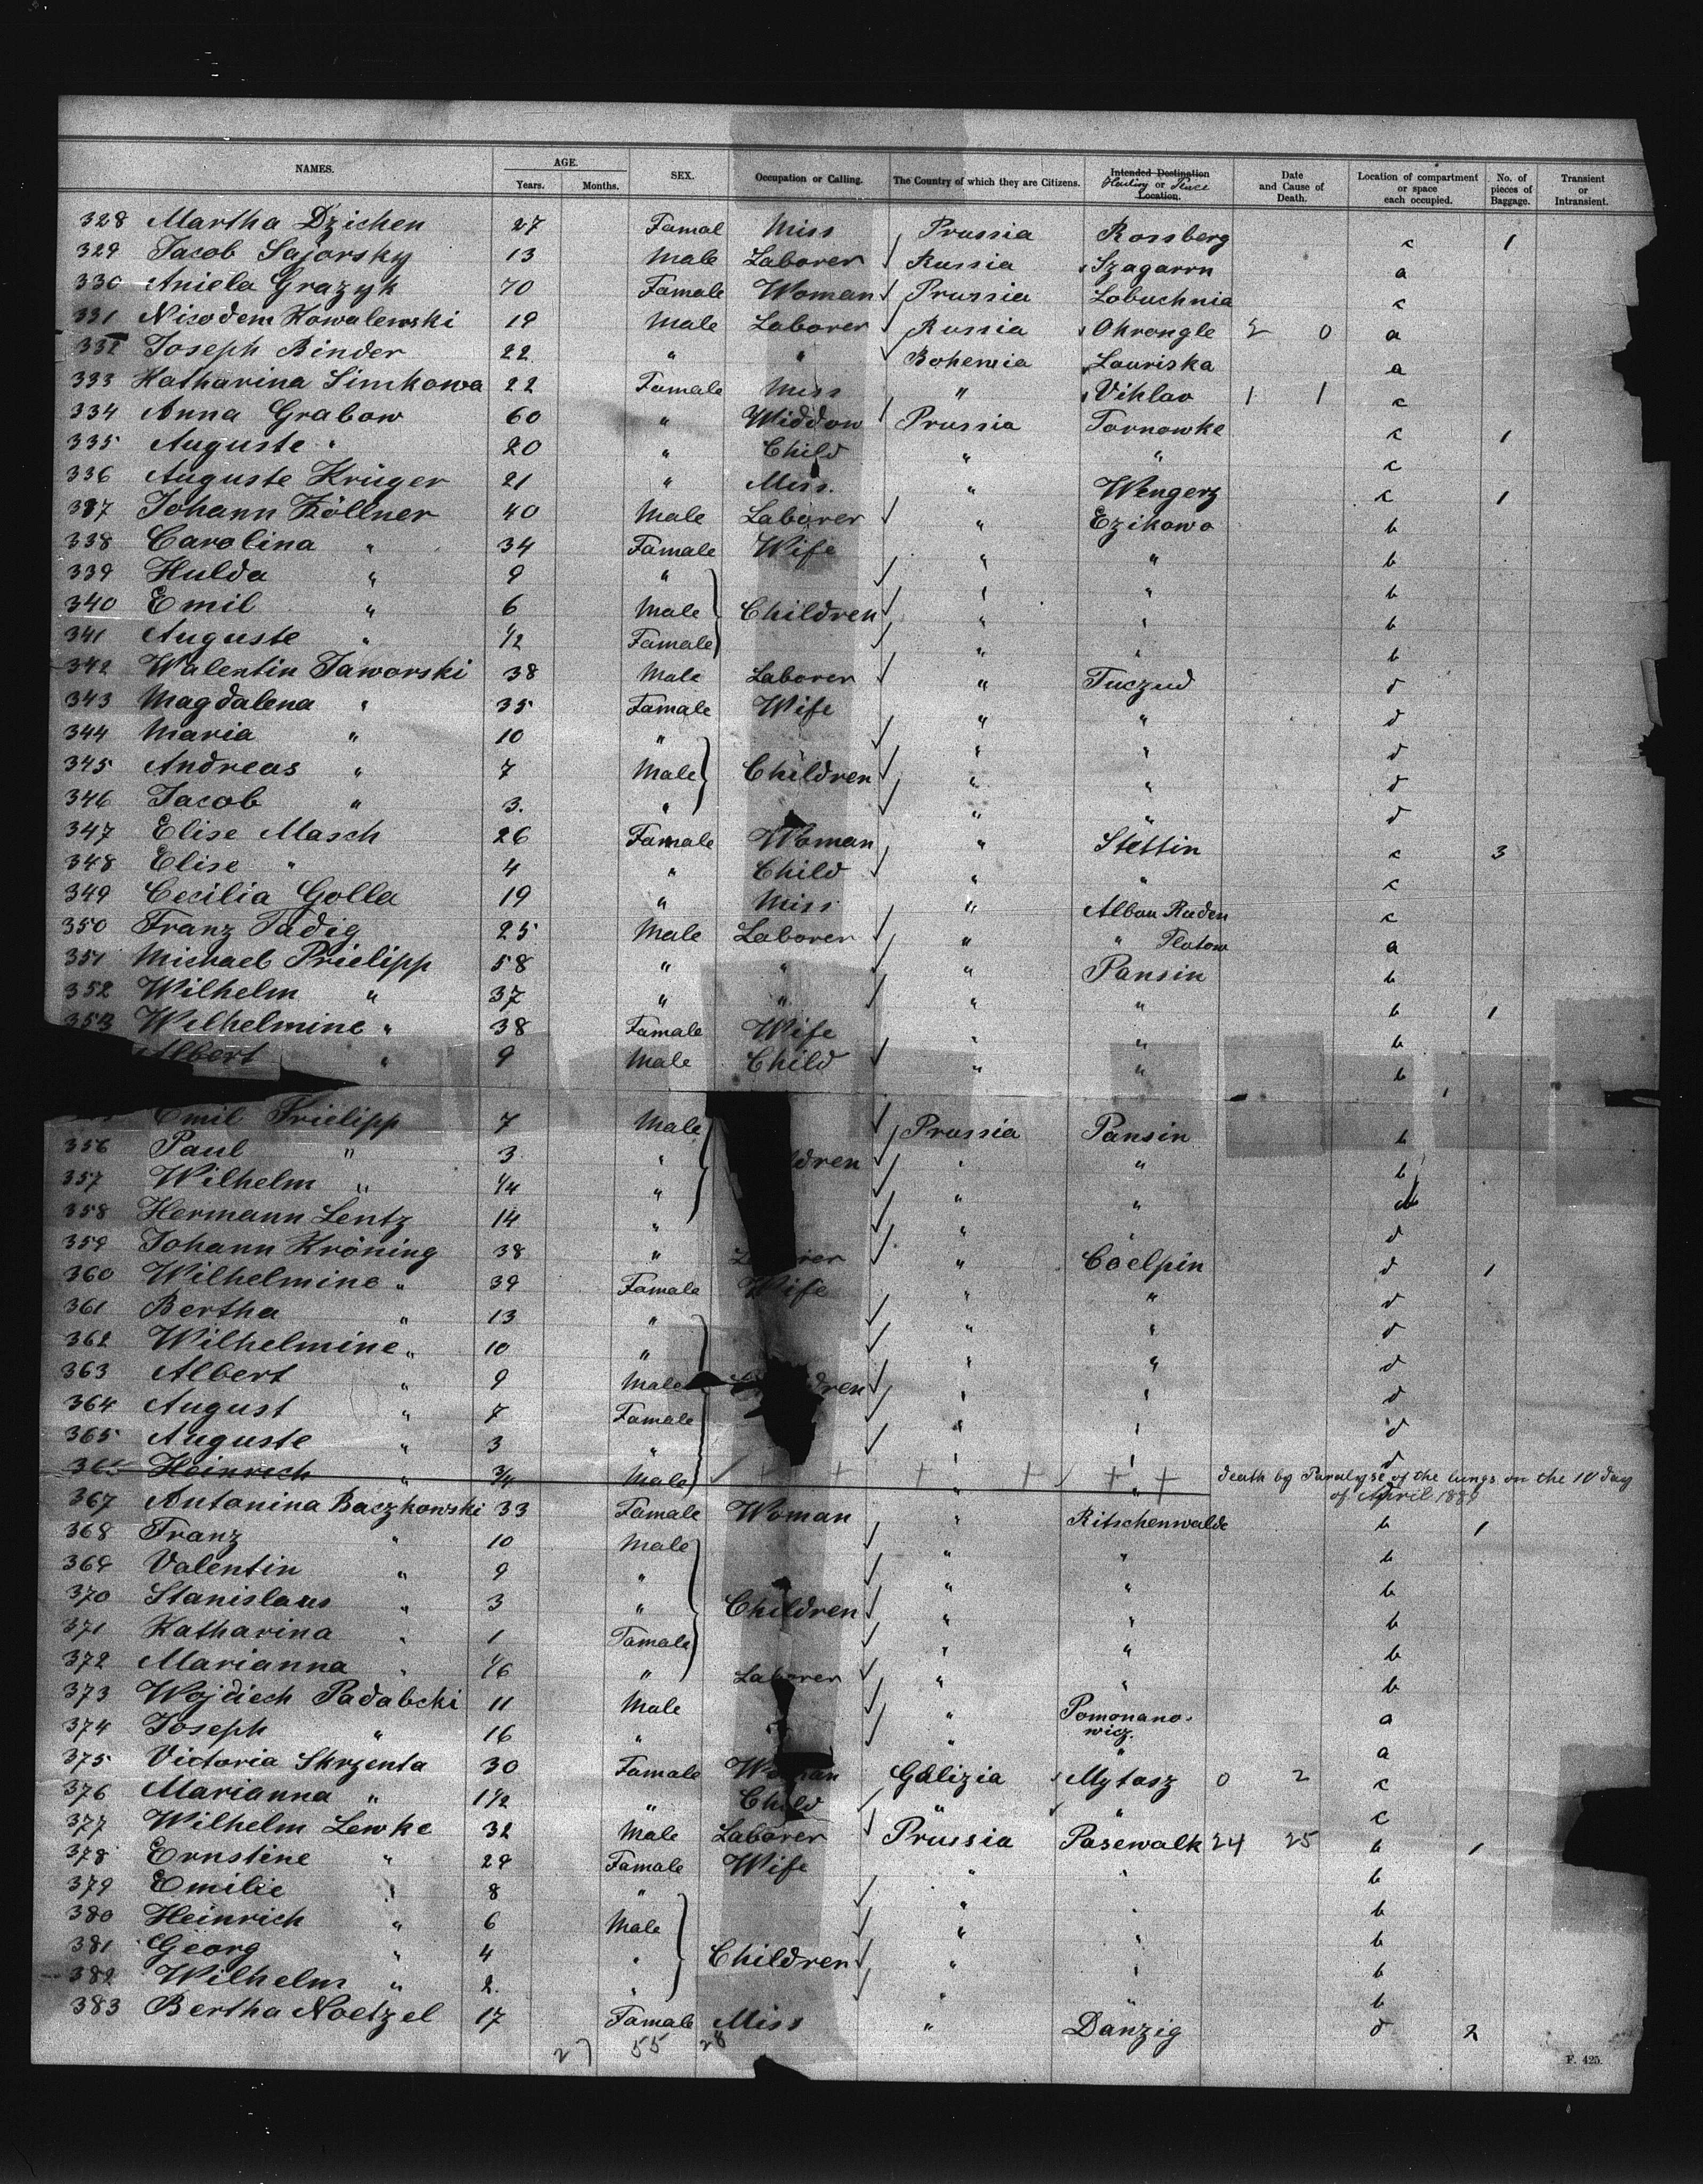 NAMES. AGE. Years. Months. SEX. Occupation or Calling. The Country of which they are Citizens. Intended Destination or Place Location. Date and Cause of Death. Location of compartment or space each occupied. No. of pieces of Baggage. Transient or Intransient.
328 Martha Dzichen 27 Famal Miss Prussia Rossberg c 1
329 Jacob Sajorsky 13 Male Laborer Russia Szagarrn a
330 Aniela Grazyk 70 Famale Woman Prussia Lobuchnia c
331 Nisodem Kowalewski 19 Male Laborer Russia Okrongle 2 0 a
332 Joseph Binder 22 " " Bohemia Lauriska a
333 Katharina Simkowa 22 Famale Miss " Vihlav 1 1 c
334 Anna Grabow 60 " Widdow Prussia Tornowke c 1
335 Auguste " 20 " Child " " c
336 Auguste Krüger 21 " Miss. " Wengerz c 1
337 Johann Köllner 40 Male Laborer " Ezikowo b
338 Carolina " 34 Famale Wife " " b
339 Hulda " 9 " " " b
340 Emil " 6 Male Children " " b
341 Auguste " 1/2 Famale " " b
342 Walentin Jaworski 38 Male Laborer " Tuczud d
343 Magdalena " 35 Famale Wife " " d
344 Maria " 10 " " " d
345 Andreas " 7 Male Children " " d
346 Jacob " 3. " " " d
347 Elise Masch 26 Famale Woman " Stettin c 3
348 Elise " 4 " Child " " c
349 Cecilia Golla 19 " Miss " Albau Ruden c
350 Franz Tadig 25 Male Laborer " " Flatow a
351 Michael Prielipp 58 " " " Pansin b
352 Wilhelm " 37 " " " " b 1
353 Wilhelmine " 38 Famale Wife " " b
Albert " 9 Male Child " " b
Emil Prielipp 7 Male Prussia Pansin b
356 Paul " 3 " ldren " " b
357 Wilhelm " 1/4 " " "
358 Hermann Lentz 14 " " " d
359 Johann Kröning 38 " rer " Coelpin d 1
360 Wilhelmine " 39 Famale Wife " " d
361 Bertha " 13 " " " d
362 Wilhelmine " 10 " " " d
363 Albert " 9 Male dren " " d
364 August " 7 Famale " " d
365 Auguste " 3 " " " d
366 Heinrich " 3/4 Male " " death by Paralyse of the lungs on the 10 day
of April 1889
367 Antonina Baczkowski 33 Famale Woman " Ritschenwalde b 1
368 Franz " 10 Male " " b
369 Valentin " 9 " " " b
370 Stanislaus " 3 " Children " " b
371 Katharina " 1 Famale " " b
372 Marianna " 1/6 " " " b
373 Wojdiech Padabcki 11 Male Laborer " Pomonano-
wicz. a
374 Joseph " 16 " " " a
375 Victoria Skrzenta 30 Famale Woman Galizia Mytasz 0 2 c
376 Marianna " 1 1/2 " Child " " c
377 Wilhelm Lewke 32 Male Laborer Prussia Pasewalk 24 25 b 1
378 Ernstine " 29 Famale Wife " " b
379 Emilie " 8 " " " b
380 Heinrich " 6 Male " " b
381 Georg " 4 " Children " " b
382 Wilhelm " 2. " " " b
383 Bertha Noetzel 17 Famale Miss " Danzig d 2
27 55 28
F. 425.